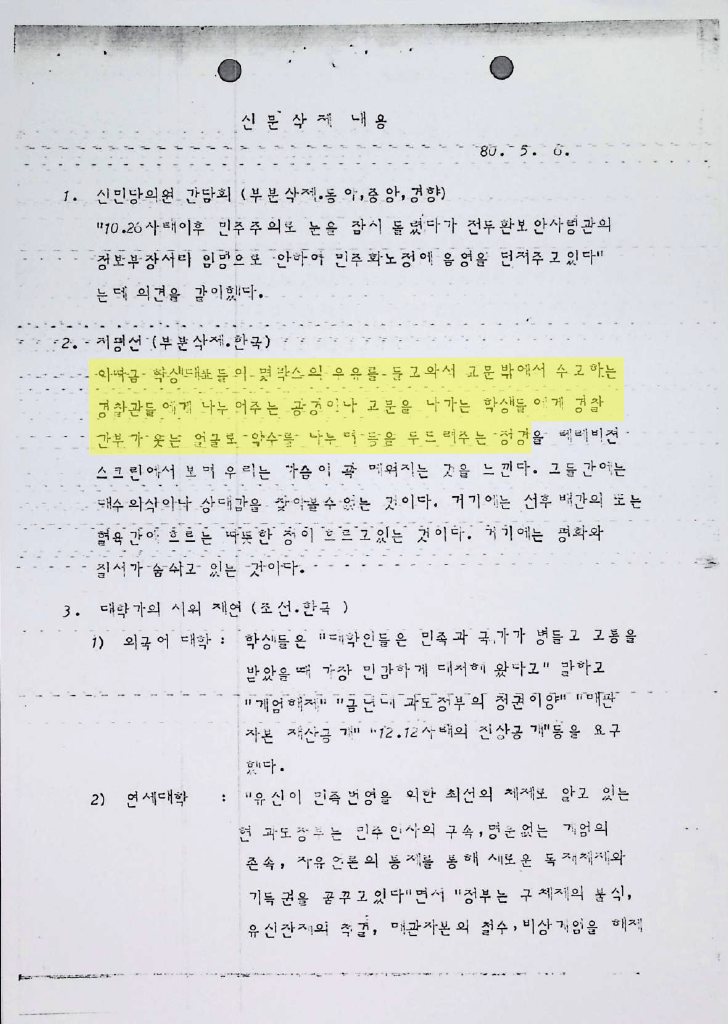 신문삭제 내용
80. 5. 6.
1. 신민당의원 간담회 (부분삭제.동아,중앙,경향)
"10.26사태이후 민주주의로 눈을 잠시 돌렸다가 전두환보안사령관의
정보부장서리 임명으로 인하여 민주화노정에 음영을 던져주고있다"
는데 의견을 같이했다.
2. 지평선 (부분삭제.한국)
학생대표들이 몇박스의 우유를 들고와서 교문밖에서 수고하는
경찰관들에게 나누어주는 광경이나 교문을 나가는 학생들에게 경찰
간부가 웃는 얼굴로 악수를 나누며 등을 두드려주는 정경을 테레비젼
스크린에서 보며 우리는 가슴이 꽉 메워지는 것을 느낀다. 그들간에는
대수의식이나 상대감을 찾아볼수 없는 것이다. 거기에는 선후배간의 또는
혈육간에 흐르는 따뜻한 정이 흐르고있는 것이다. 거기에는 평화와
질서가 숨쉬고 있는 것이다.
3. 대학가의 시위 재연 (조선.한국)
1) 외국어 대학 : 학생들은 "대학인들은 민족과 국가가 병들고 고통을
받았을때 가장 민감하게 대처해 왔다고" 말하고
"계엄해제" "금년내 과도정부의 정권이양" "매판
자본 재산공개" "12.12사태의 진상공개"등을 요구
했다.
2) 연세대학 : "유신이 민족번영을 위한 최선의 체제로 알고 있는
현 과도정부는 민주인사의 구속,명분없는 계엄의
존속, 자유언론의 통제를 통해 새로운 독재체제와
기득권을 꿈꾸고있다"면서 "정부는 구체제의 불식,
유신잔재의 척결, 매판자본의 철수,비상계엄을 해제